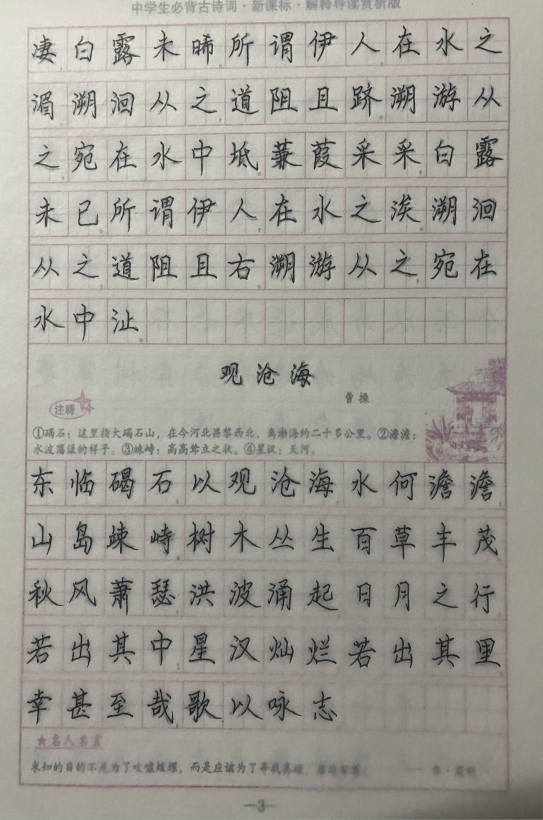 中学生必背古诗词·新课标·解释导读赏析版
凄白露未晞所谓伊人在水之
湄溯洄从之道阻且跻溯游从
之宛在水中坻蒹葭采采白露
未已所谓伊人在水之涘溯洄
从之道阻且右溯游从之宛在
水中沚
观沧海
曹操
注释
①碣石：这里指大碣石山，在今河北昌黎西北，离渤海约二十多公里。②澹澹：
水波荡漾的样子。③竦峙：高高耸立之状。④星汉：天河。
东临碣石以观沧海水何澹澹
山岛竦峙树木丛生百草丰茂
秋风萧瑟洪波涌起日月之行
若出其中星汉灿烂若出其里
幸甚至哉歌以咏志
★名人名言
求知的目的不是为了吹嘘炫耀，而是应该为了寻找真理
—3—